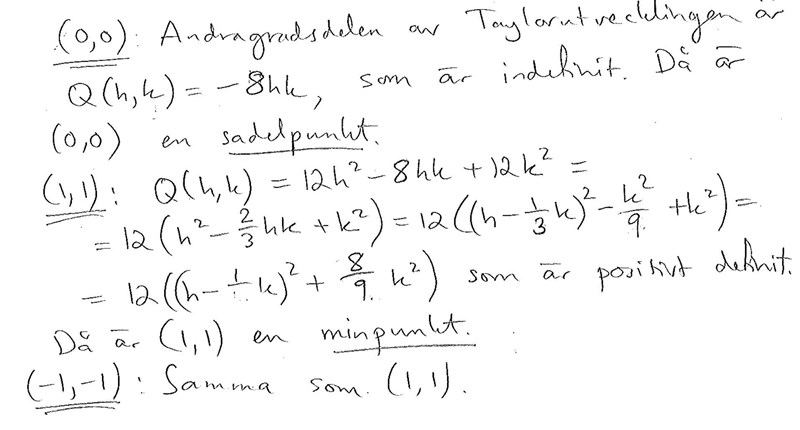 (0,0): Andragradsdelen av Taylorutvecklingen är
Q(h,k) = -8hk, som är indefinit. Då är
(0,0) en sadelpunkt.
(1,1): Q(h,k) = 12h² - 8hk + 12k² =
= 12(h² - 2/3 hk + k²) = 12((h - 1/3 k)² - k²/9 + k²) =
= 12((h - 1/ k)² + 8/9 k²) som är positivt definit.
Då är (1,1) en minpunkt.
(-1,-1): Samma som (1,1).